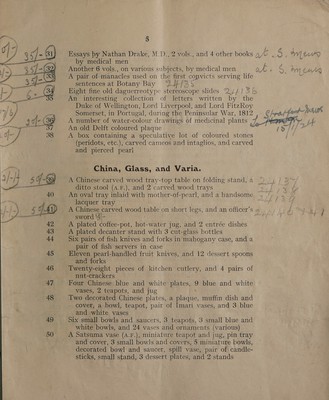 5
31 Essays by Nathan Drake, M.D., 2 vols., and 4 other books
by medical men
32 Another 6 vols., on various subjects, by medical men
33 A pair of manacles used on the first convicts serving life
sentences at Botany Bay
34 Eight fine old daguerreotype stereoscope slides
35 An interesting collection of letters written by the
Duke of Wellington, Lord Liverpool, and Lord FitzRoy
Somerset, in Portugal, during the Peninsular War, 1812
36 A number of water-colour drawings of medicinal plants
37 An old Delft coloured plaque
38 A box containing a speculative lot of coloured stones
(peridots, etc.), carved cameos and intaglios, and carved
and pierced pearl
China, Glass, and Varia.
39 A Chinese carved wood tray-top table on folding stand, a
ditto stool (A.F.), and 2 carved wood trays
40 An oval tray inlaid with mother-of-pearl, and a handsome
lacquer tray
41 A Chinese carved wood table on short legs, and an officer's
sword
42 A plated coffee-pot, hot-water jug, and 2 entrée dishes
43 A plated decanter stand with 3 cut-glass bottles
44 Six pairs of fish knives and forks in mahogany case, and a
pair of fish servers in case
45 Eleven pearl-handled fruit knives, and 12 dessert spoons
and forks
46 Twenty-eight pieces of kitchen cutlery, and 4 pairs of
nut-crackers
47 Four Chinese blue and white plates, 9 blue and white
vases, 2 teapots, and jug
48 Two decorated Chinese plates, a plaque, muffin dish and
cover, a bowl, teapot, pair of Imari vases, and 3 blue
and white vases
49 Six small bowls and saucers, 3 teapots, 3 small blue and
white bowls, and 24 vases and ornaments (various)
50 A Satsuma vase (A.F.), miniature teapot and jug, pin tray
and cover, 3 small bowls and covers, 5 miniature bowls,
decorated bowl and saucer, spill vase, pair of candle-
sticks, small stand, 3 dessert plates, and 2 stands